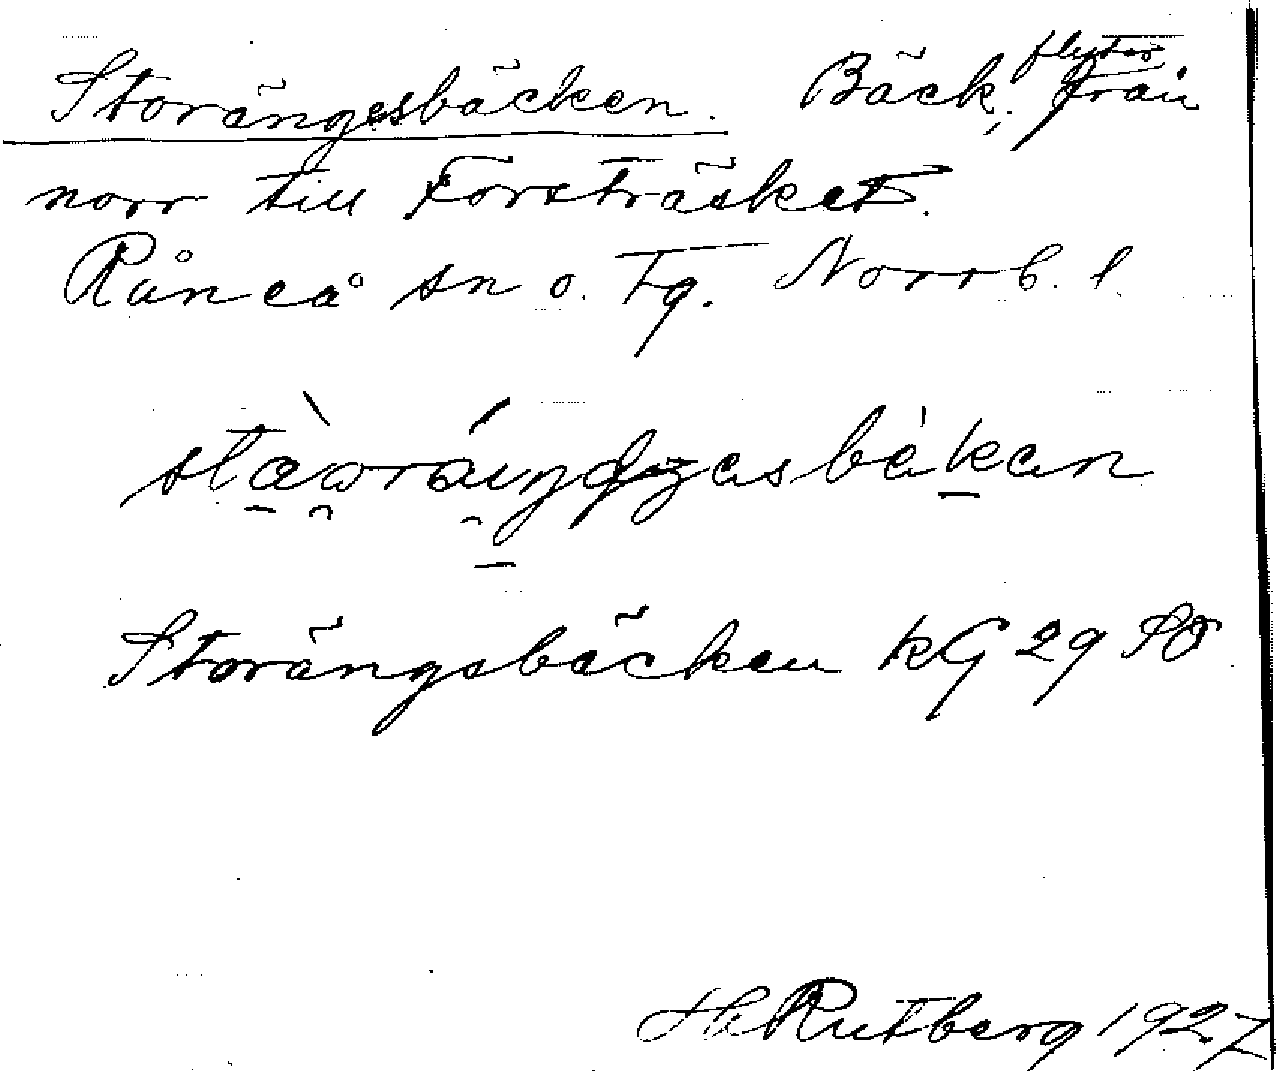 Storängesbäcken. Bäck, flyter från
norr till Forsträsket.
Råneå sn o. tg. Norrb. l.
Storängsbäcken KG 29 SO
H Rutberg 1927